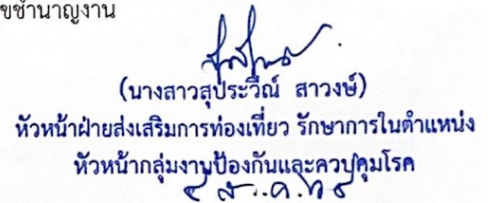 ขชำนาญงาน
(นางสาวสุประวีณ์ สาวงษ์)
หัวหน้าฝ่ายส่งเสริมการท่องเที่ยว รักษาการในตำแหน่ง
หัวหน้ากลุ่มงานป้องกันและควบคุมโรค